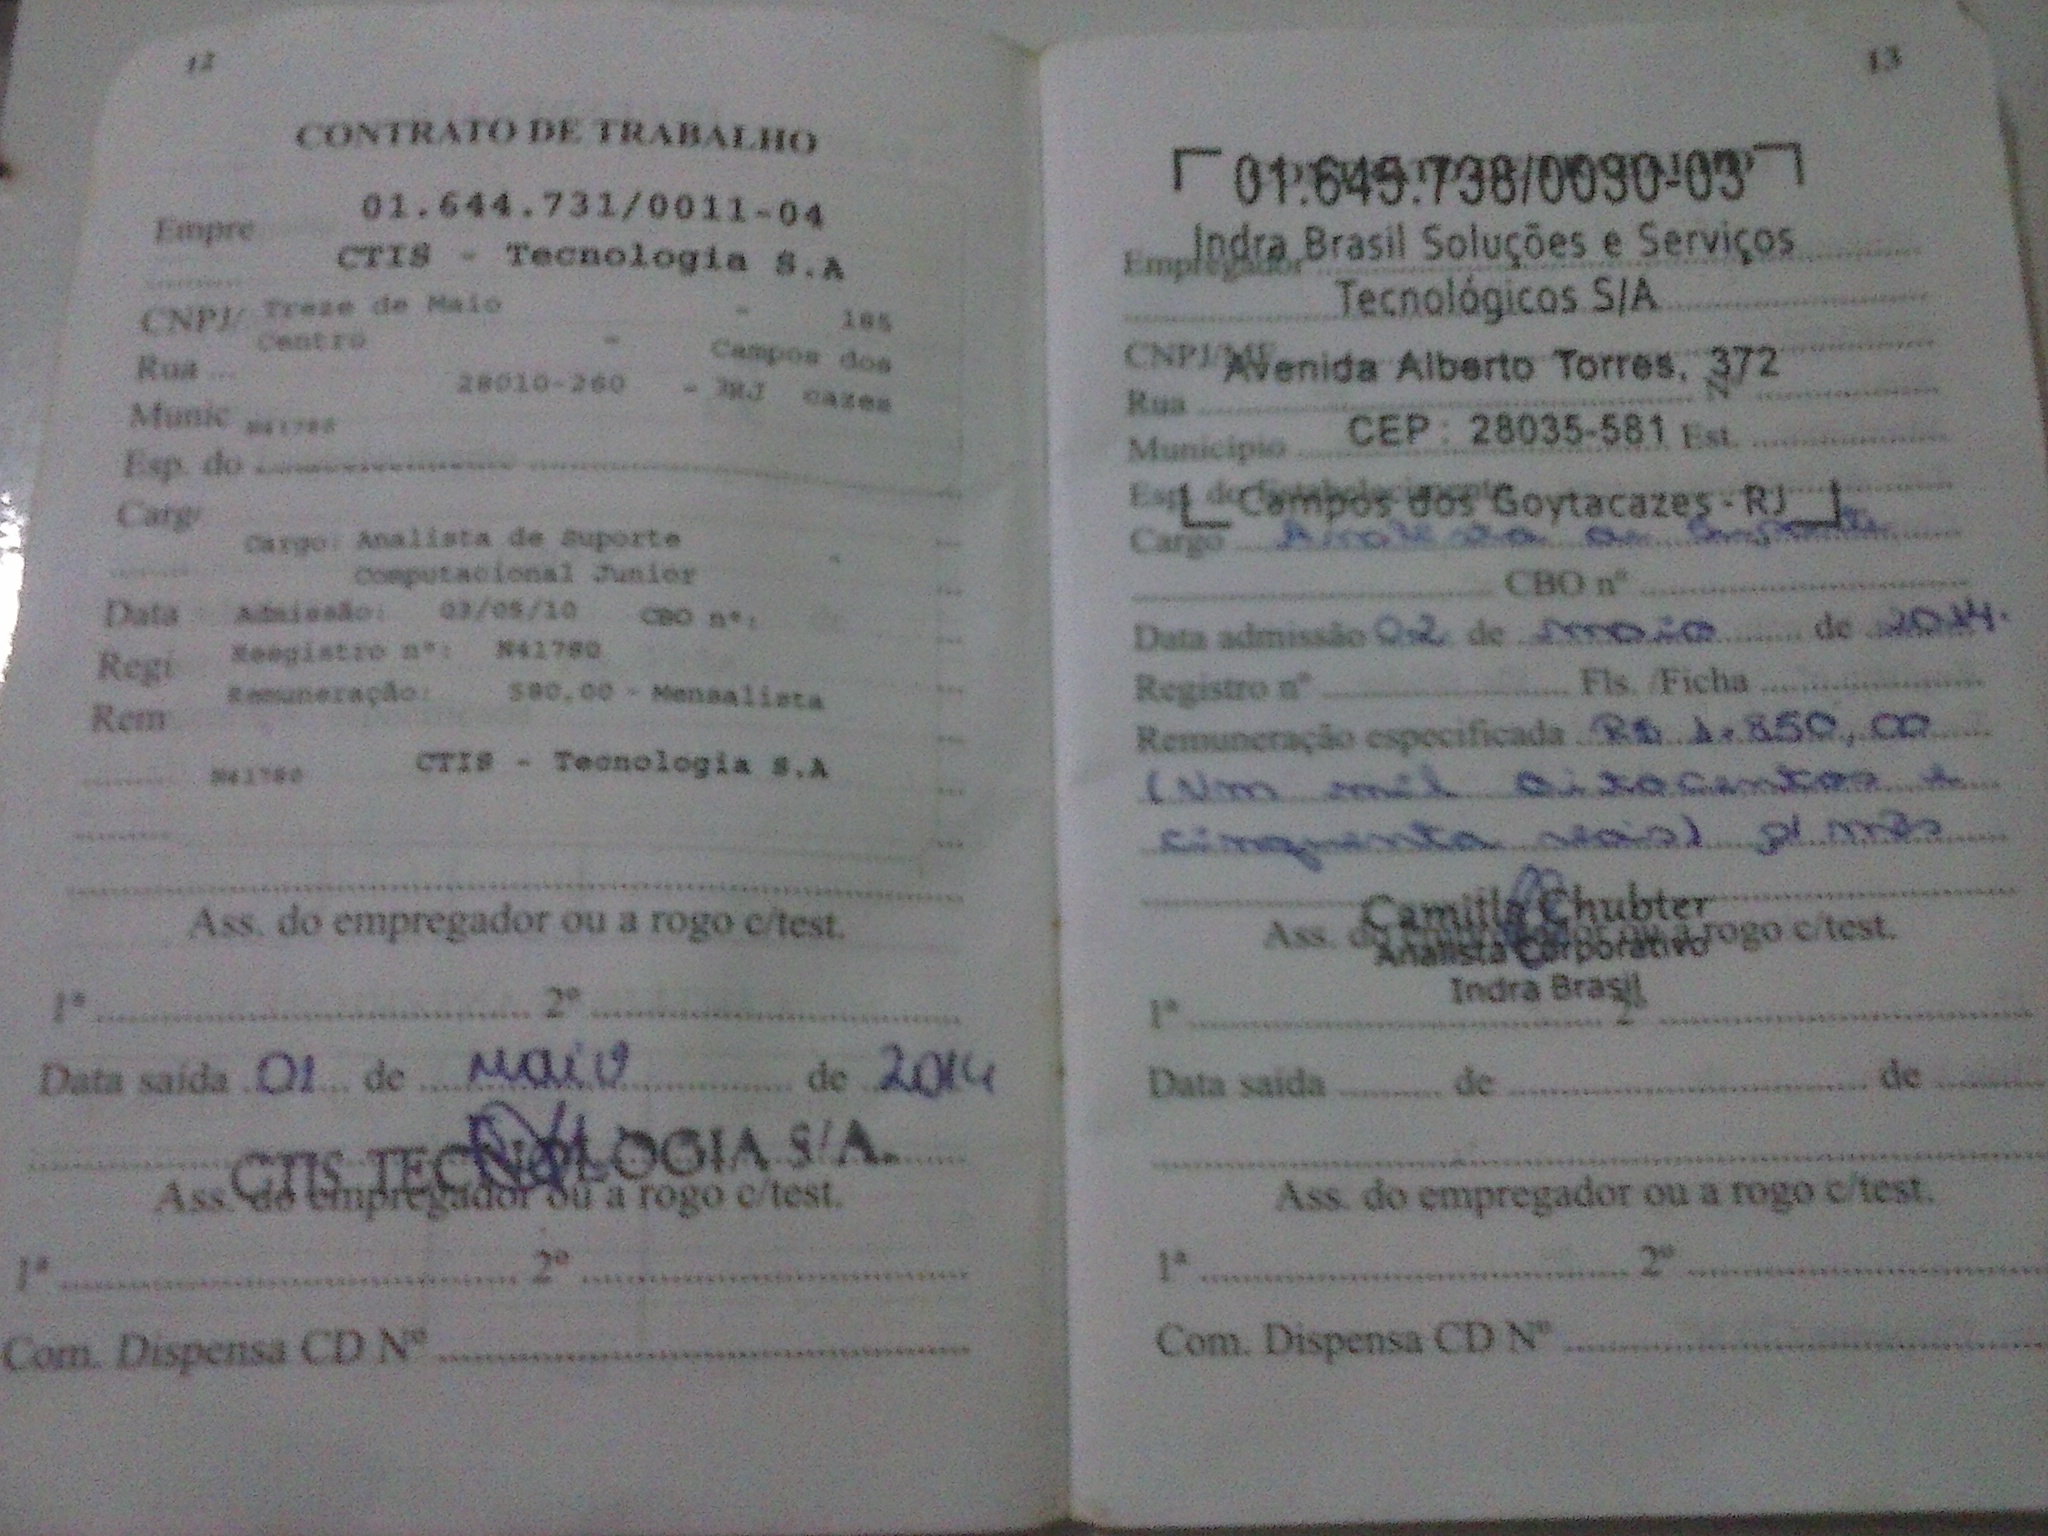 12
CONTRATO DE TRABALHO
01.644.731/0011-04
Empre
CTIS - Tecnologia S.A
CNPJ/ Treze de Maio - 185
Centro - Campos dos
Rua ...
28010-260 - RJ cazes
Munic N41780
Esp. do
Carg
Cargo: Analista de Suporte
Computacional Junior
Data Admissão: 03/05/10 CBO nº:
Regi Resgistro nº: N41780
Rem Remuneração: 580,00 - Mensalista
N41780 CTIS - Tecnologia S.A
Ass. do empregador ou a rogo c/test.
1ª 2º
Data saída 01 de Maio de 2014
CTIS TECNOLOGIA S/A.
Ass. do empregador ou a rogo c/test.
1ª 2º
Com. Dispensa CD Nº
13
01.645.738/0090-03
Indra Brasil Soluções e Serviços
Empregador
Tecnológicos S/A
CNPJ/MF
Avenida Alberto Torres, 372
Rua Nº
CEP: 28035-581
Município Est.
Esp. do Estabelecimento
Campos dos Goytacazes - RJ
Cargo Analista de Suporte
CBO nº
Data admissão 02 de maio de 2014.
Registro nº Fls. /Ficha
Remuneração especificada R$ 1.850,00
(Um mil oitocentos e
cinquenta reais) p/ mês
Camilla Chubter
Ass. do empregador ou a rogo c/test.
Analista Corporativo
Indra Brasil
1ª 2º
Data saída de de
Ass. do empregador ou a rogo c/test.
1ª 2º
Com. Dispensa CD Nº